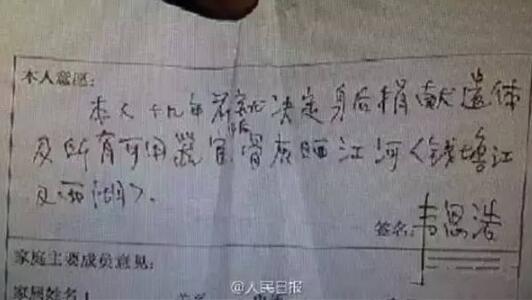 本人意愿:
本人十九年前就决定身后捐献遗体
及所有可用器官骨灰洒江河<钱塘江
及西湖>.
签名:韦思浩
家庭主要成员意见:
家属姓名
@人民日报